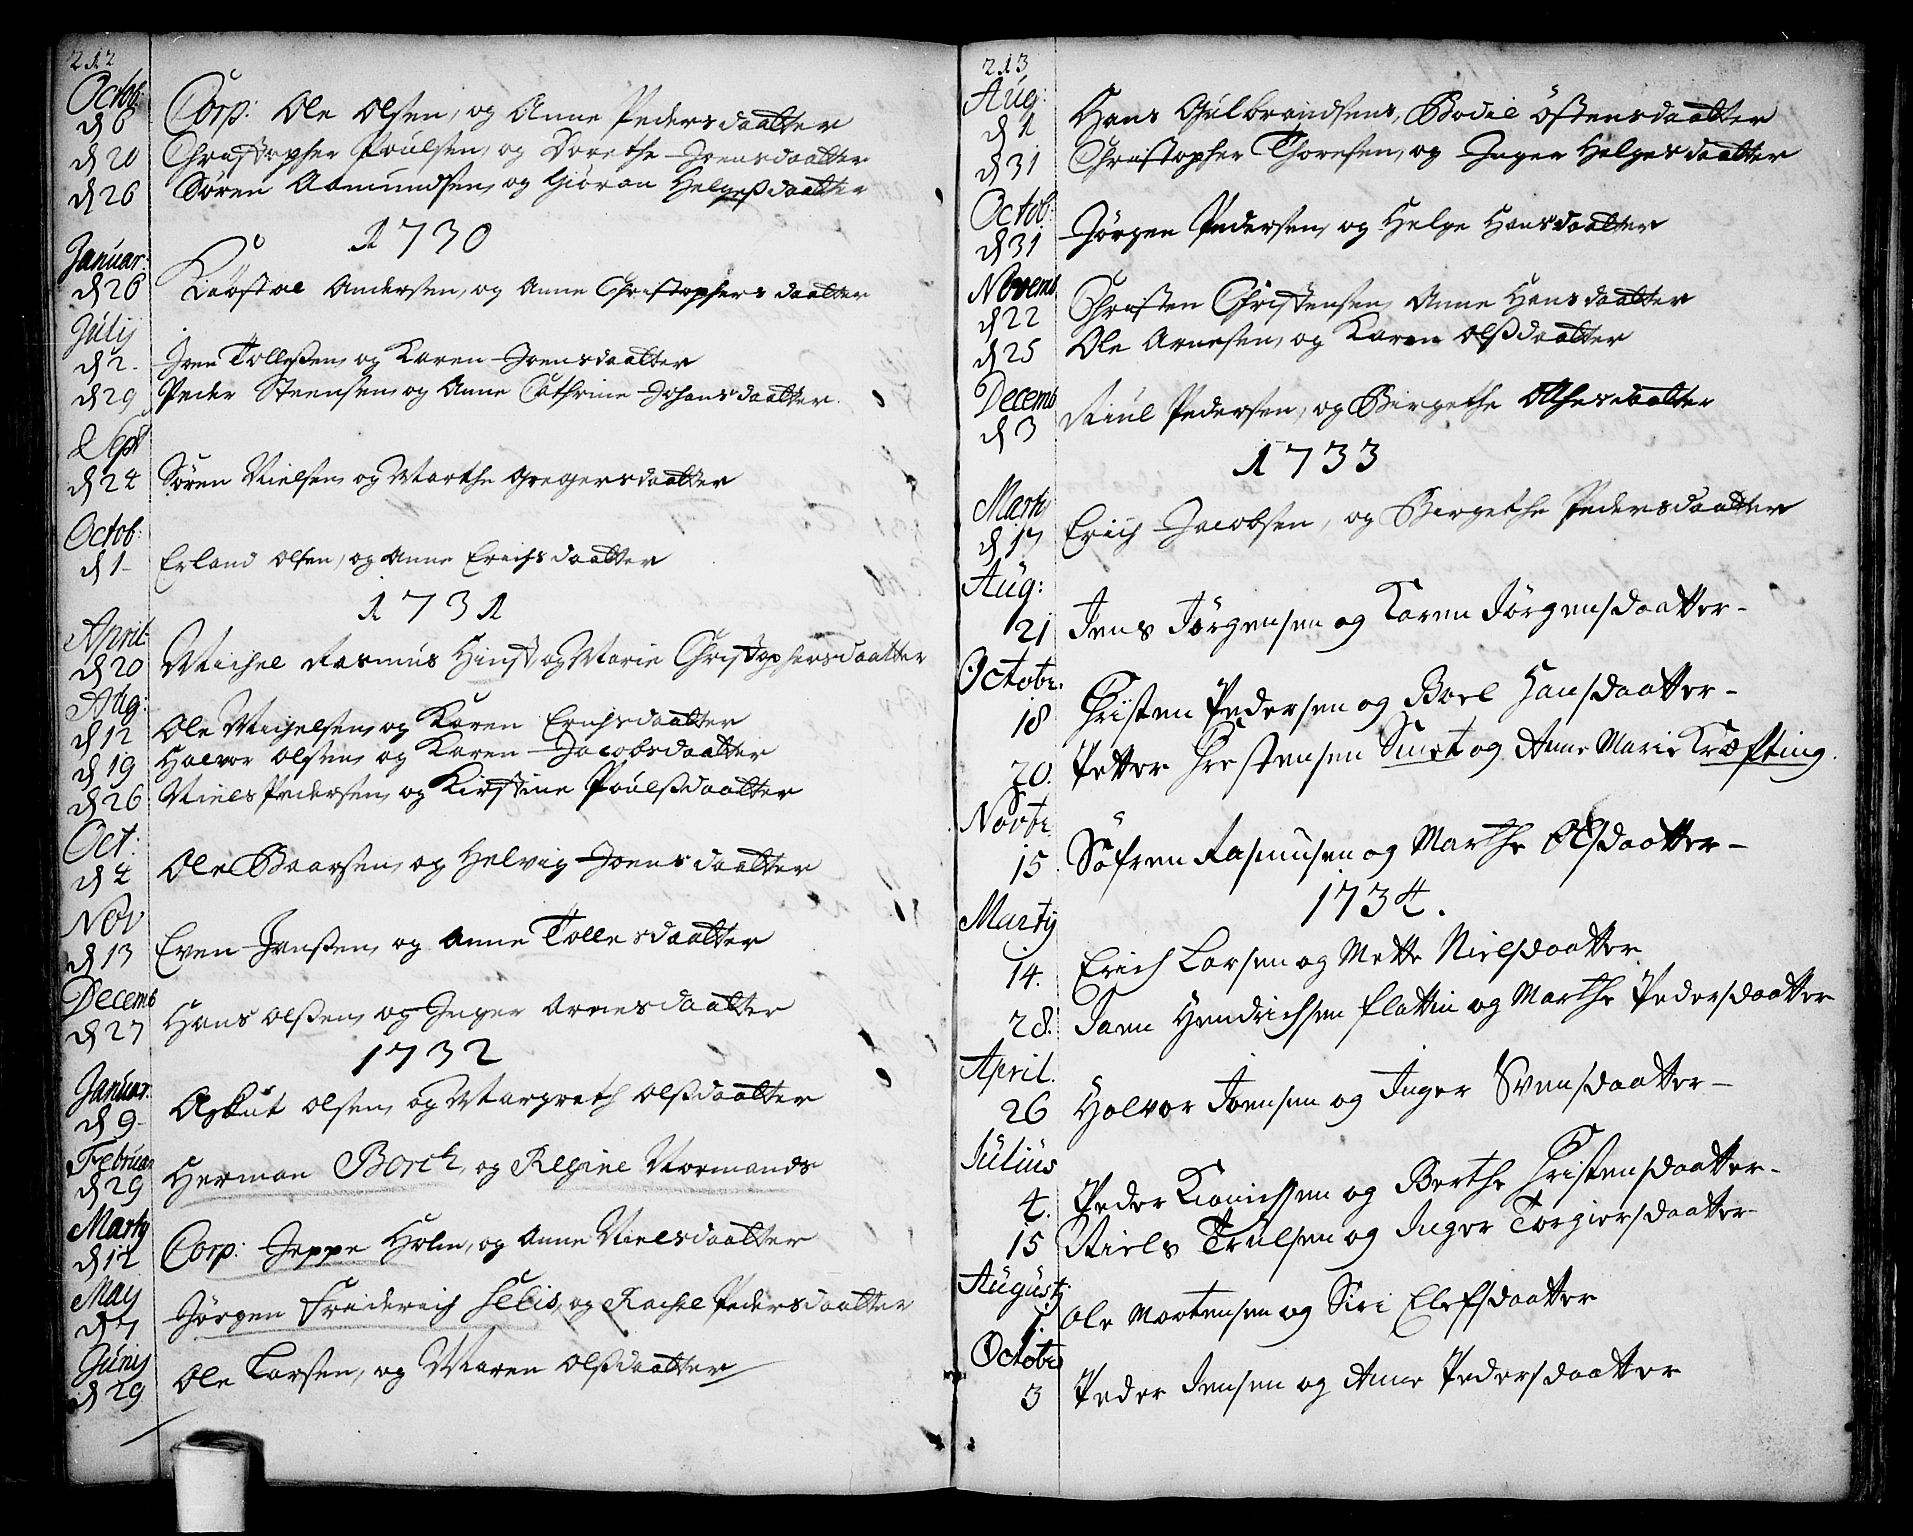 212
Octob:
d 6 Corp: Ole Olsen, og Anne Pedersdaatter
d 20 Christopher Poulsen, og Dorethe Joensdaatter
d 26 Sören Aamundsen, og Giöran Helgesdaatter
1730
Januar:
d 26 Andersen, og Anne Christophersdaatter
Julij
d 2. Joen Tollessen, og Karen Joensdaatter
d 29 Peder Steensen, og Anne Cathrine Johansdaatter.
Sept
d 24 Sören Nielsen, og Marthe Gregersdaatter
Octob:
d 1 Erland Olsen, og Anne Erichsdaatter
1731
April
d 20 Michel Rasmus Hinst, og Marie Christophersdaatter
Aug:
d 12 Ole Michelsen, og Karen Erichsdaatter
d 19 Halvor Olsen, og Karen Jacobsdaatter
d 26 Niels Pedersen, og Kirstine Poulsdaatter
Oct:
d 4 Ole Baarsen, og Helvig Joensdaatter
Nov
d 13 Even Jenssen, og Anne Tollesdaatter
Decemb
d 27 Hans Olssen, og Inger Arnesdaatter
1732
Januar.
d 9. Askut Olsen, og Margreth Olssdaatter
Februar
d 29 Herman Borch, og Regine Normands
Martij
d 12 Corp: Jeppe Holm, og Anne Nielsdaatter
Maij
d 7 Jörgen Friderich Selis, og Rachel Pedersdaatter
Junij
d 29 Ole Larsen, og Maren Olssdaatter
213
Aug:
d 1 Hans Gulbrandsens, Bodil Östensdaatter
d 31 Christopher Thoresen, og Inger Helgesdaatter
Octob:
d 31 Jörgen Pedersen, og Helge Hansdaatter
Novemb
d 22 Christen Christensen, Anne Hansdaatter
d 25 Ole Arnesen, og Karen Olssdaatter
Decemb
d 3 Riul Pedersen, og Birgethe Olhesdaatter
1733
Martij
d 17 Erich Jacobsen, og Birgethe Pedersdaatter
Aug:
21 Jens Jörgensen og Karen Jörgensdaatter-
Octobr.
18 Christen Pedersen og Boel Hansdaatter-
20. Petter Chrestensen Smet og Anne Marie Kræfting.
Novbr
15 Söfren Rasmusen og Marthe Olsdaatter-
1734.
Martij
14. Erich Larsen og Mette Nielsdaatter
28. Joen Hendrichsen Flattin og Marthe Pedersdaatter
April.
26 Halvor Joensen og Inger Svensdaatter-
Julius
4. Peder og Berthe Christensdaatter-
15 Niels Trulsen og Inger Torgiersdaatter
Augustj
1. Ole Mortensen og Siri Elefsdaatter
Octobr
3 Peder Jensen og Anne Pedersdaatter